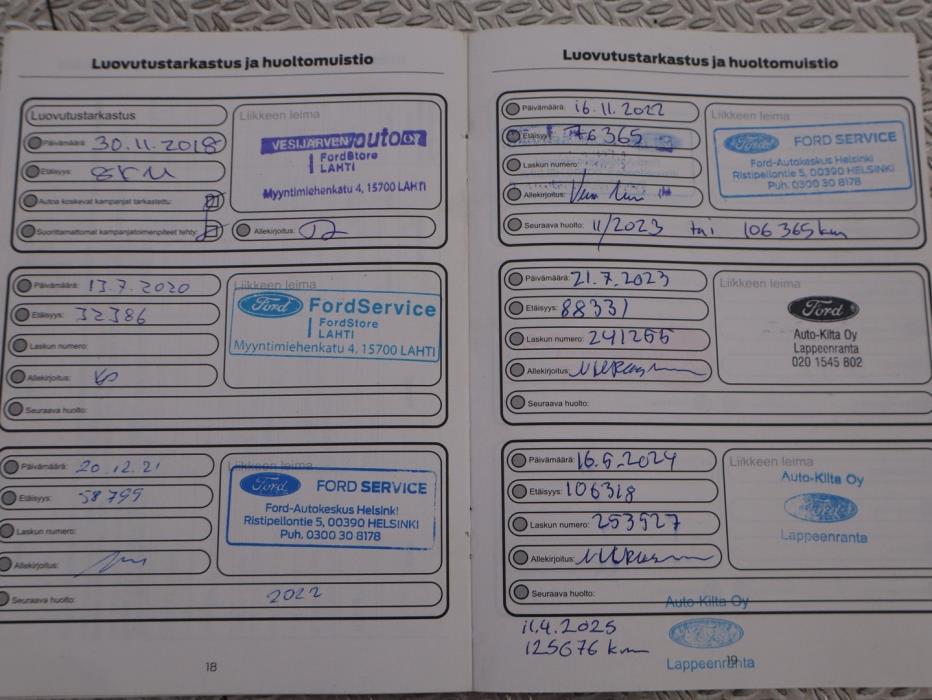 Luovutustarkastus ja huoltomuistio
Luovutustarkastus
Päivämäärä: 30.11.2018
Etäisyys: 8KM
Autoa koskevat kampanjat tarkastettu:
Suorittamattomat kampanjatoimenpiteet tehty:
Liikkeen leima
VESIJÄRVEN auto OY
FordStore
LAHTI
Myyntimiehenkatu 4, 15700 LAHTI
Allekirjoitus:
Päivämäärä: 13.7.2020
Etäisyys: 32386
Laskun numero:
Allekirjoitus:
Seuraava huolto:
Liikkeen leima
Ford FordService
FordStore
LAHTI
Myyntimiehenkatu 4, 15700 LAHTI
Päivämäärä: 20.12.21
Etäisyys: 58799
Laskun numero:
Allekirjoitus:
Seuraava huolto: 2022
Liikkeen leima
Ford FORD SERVICE
Ford-Autokeskus Helsinki
Ristipellontie 5, 00390 HELSINKI
Puh. 0300 30 8178
18
Luovutustarkastus ja huoltomuistio
Päivämäärä: 16.11.2022
Etäisyys: 76365
Laskun numero:
Allekirjoitus:
Seuraava huolto: 11/2023 tai 106365km
Liikkeen leima
Ford FORD SERVICE
Ford-Autokeskus Helsinki
Ristipellontie 5, 00390 HELSINKI
Puh. 0300 30 8178
Päivämäärä: 21.7.2023
Etäisyys: 88331
Laskun numero: 241255
Allekirjoitus:
Seuraava huolto:
Liikkeen leima
Ford
Auto-Kilta Oy
Lappeenranta
020 1545 802
Päivämäärä: 16.5.2024
Etäisyys: 106318
Laskun numero: 253527
Allekirjoitus:
Seuraava huolto:
Liikkeen leima
Auto-Kilta Oy
Ford
Lappeenranta
11.4.2025
125676 km
Auto-Kilta Oy
Ford
Lappeenranta
19